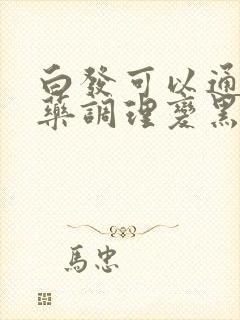 白發可以通
藥調理變黑
馬忠